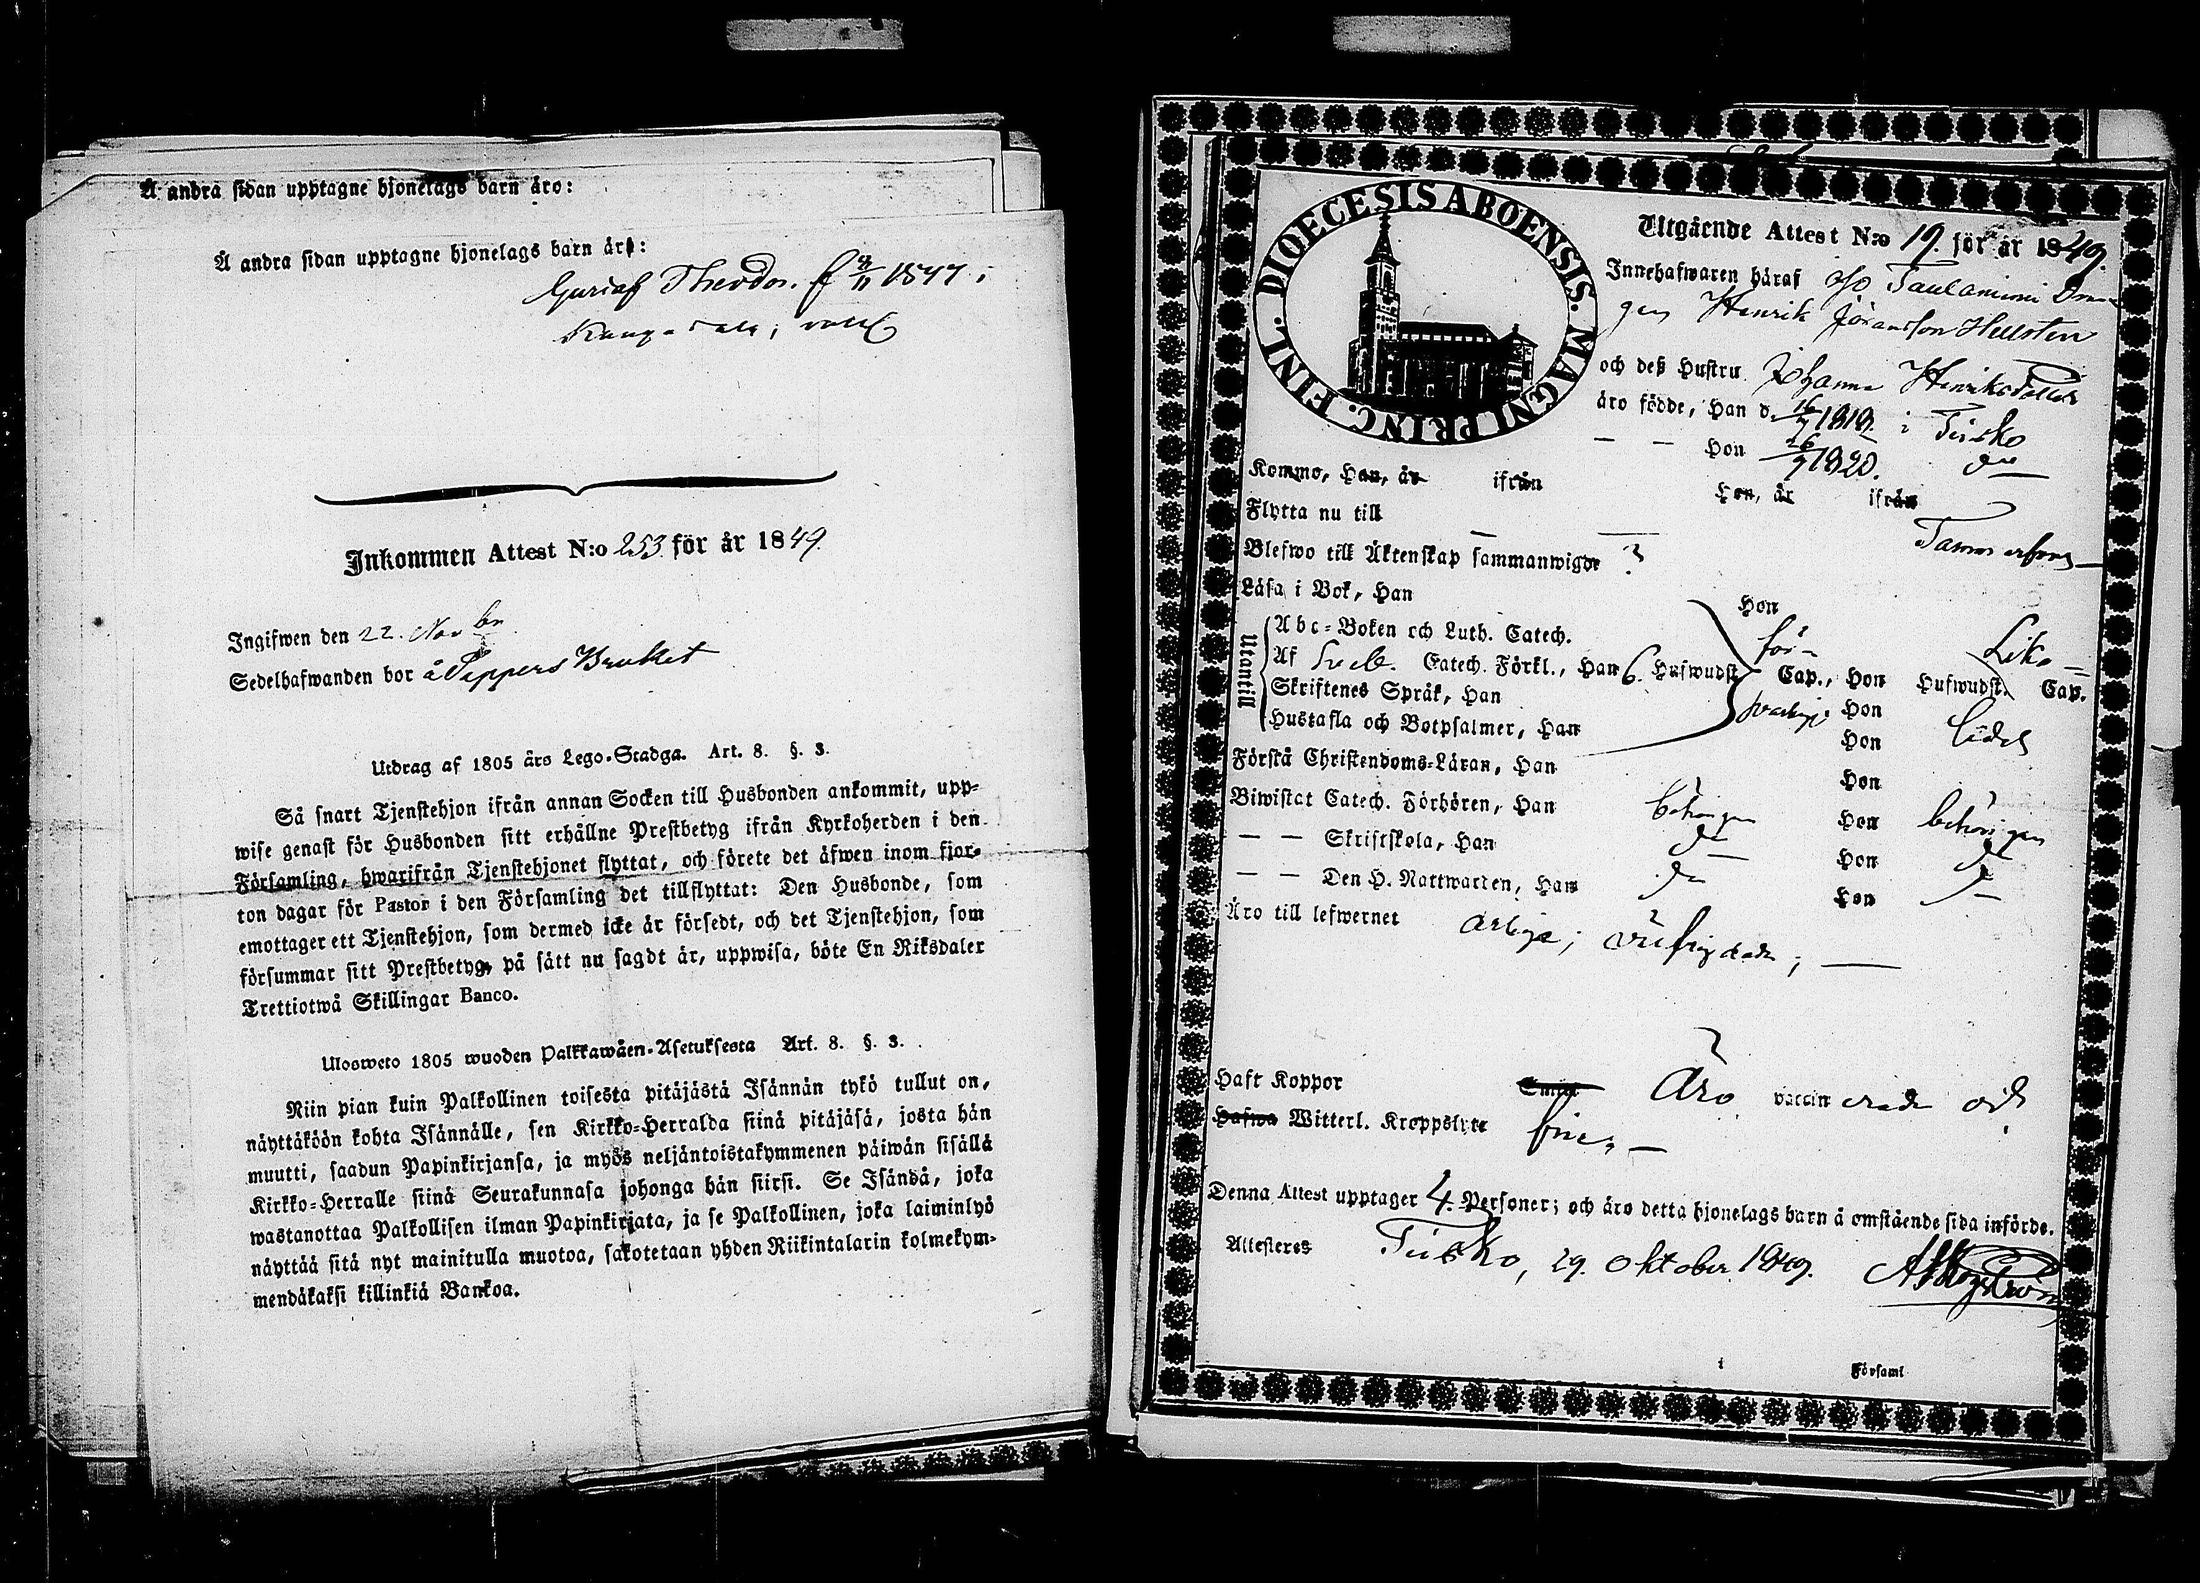 Å andra sidan upptagne hjonelags barn äro:
Å andra sidan upptagne hjonelags barn äro:
Gustaf Theodor. f 1847 i
Inkommen Attest N:o 253 för år 1849.
Ingifwen den 22. Novbr
Sedelhafwanden bor å Pappers Bruket
Utdrag af 1805 års Lego-Stadga. Art. 8. §. 3.
Så snart Tjenstehjon ifrån annan Socken till Husbonden ankommit, upp-
wise genast för Husbonden sitt erhållne Prestbetyg ifrån Kyrkoherden i den
Församling, hwarifrån Tjenstehjonet flyttat, och förete det äfwen inom fjor-
ton dagar för Pastor i den Församling det tillflyttat: Den Husbonde, som
emottager ett Tjenstehjon, som dermed icke är försedt, och det Tjenstehjon, som
försummar sitt Prestbetyg, på sätt nu sagdt är, uppwisa, böte En Riksdaler
Trettiotwå Skillingar Banco.
Ulosweto 1805 wuoden Palkkawäen-Asetuksesta Art. 8. §. 3.
Niin pian kuin Palkollinen toisesta pitäjästä Isännän tykö tullut on,
näyttäköön kohta Isännälle, sen Kirkko-Herralda siinä pitäjäsä, josta hän
muutti, saadun Papinkirjansa, ja myös neljäntoistakymmenen päiwän sisällä
Kirkko-Herralle siinä Seurakunnasa johonga hän siirsi. Se Isändä, joka
wastanottaa Palkollisen ilman Papinkirjata, ja se Palkollinen, joka laiminlyö
näyttää sitä nyt mainitulla muotoa, sakotetaan yhden Riikintalarin kolmekym-
mendäkaksi killinkiä Bankoa.
DIOECESIS ABOENSIS. MAGNI PRINC. FINL.
Utgående Attest N:o 19. för år 1849.
Innehafwaren häraf
Henrik Jöransson Hellsten
och deß Hustru Johanna Henriksdotter
äro födde, Han d. 16/7 1819. i Teisko
— — Hon 26/7 1820. do
Kommo, Han, år ifrån Hon, år ifrån
Flytta nu till Tammerfors
Blefwo till Äktenskap sammanwigde ?
Läsa i Bok, Han Hon
Utantill
Abc-Boken och Luth. Catech. för- Lika
Af Sveb. Catech. Förkl., Han 6. Hufwudst. Cap., Hon Hufwudst. Cap.
Skriftenes Språk, Han Hon
Hustafla och Botpsalmer, Han Hon
Förstå Christendoms-Läran, Han Hon
Biwistat Catech. Förhören, Han behörigen Hon behörigen
— — Skriftskola, Han do Hon do
— — Den H. Nattwarden, Han do Hon do
Äro till lefwernet ärlige; välfrejdade;
Haft Koppor Äro vaccinerade och
Hafwa Witterl. Kroppslyte frie,
Denna Attest upptager 4. Personer; och äro detta hjonelags barn å omstående sida införde.
Attesteres Teisko, 29. Oktober 1849.
i Församl